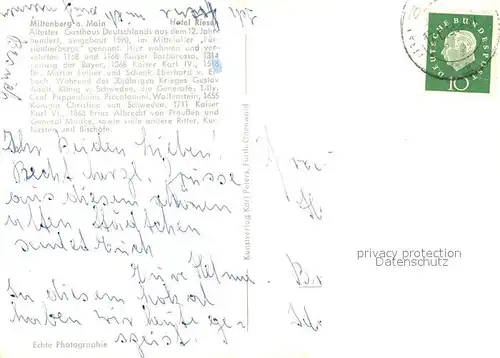 Miltenberg a. Main Hotel Riesen
Ältestes Gasthaus Deutschlands aus dem 12. Jahr-
hundert, umgebaut 1590, im Mittelalter „Für-
stenherberge" genannt. Hier wohnten und ver-
kehrten 1158 und 1168 Kaiser Barbarossa, 1314
Ludwig der Bayer, 1368 Kaiser Karl IV., 1518
Dr. Martin Luther und Schenk Eberhard v. Er-
bach. Während des 30jährigen Krieges Gustav
Adolf, König v. Schweden, die Generale: Tilly,
Graf Pappenheim, Piccolomini, Wallenstein, 1655
Königin Christine von Schweden, 1711 Kaiser
Karl VI., 1866 Prinz Albrecht von Preußen und
General Moltke, sowie viele andere Ritter, Kur-
fürsten und Bischöfe.
Ihr beiden Lieben!
Recht herzl. Grüsse
aus diesem schönen
alten Städtchen
sendet Euch
Eure Helma.
In diesem hotel
haben wir heute ge-
speist.
Echte Photographie
Kunstverlag Karl Peters, Fürth/Odenwald
DEUTSCHE BUNDESPOST
10
privacy protection
Datenschutz